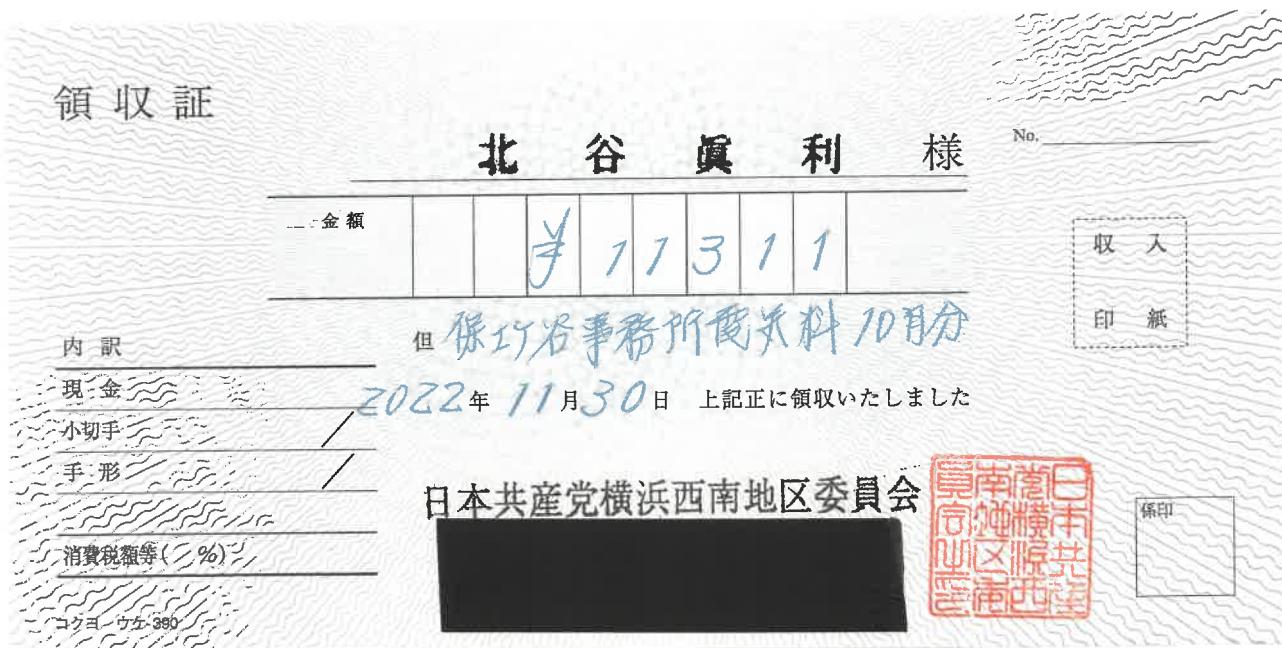 領収証
北谷眞利 様
No.
金額 ¥11311
収入
印紙
但 保土ケ谷事務所電気料 10月分
2022年 11月30日 上記正に領収いたしました
内訳
現金
小切手
手形
消費税額等( %)
日本共産党横浜西南地区委員会
係印
コクヨ ウケ-390